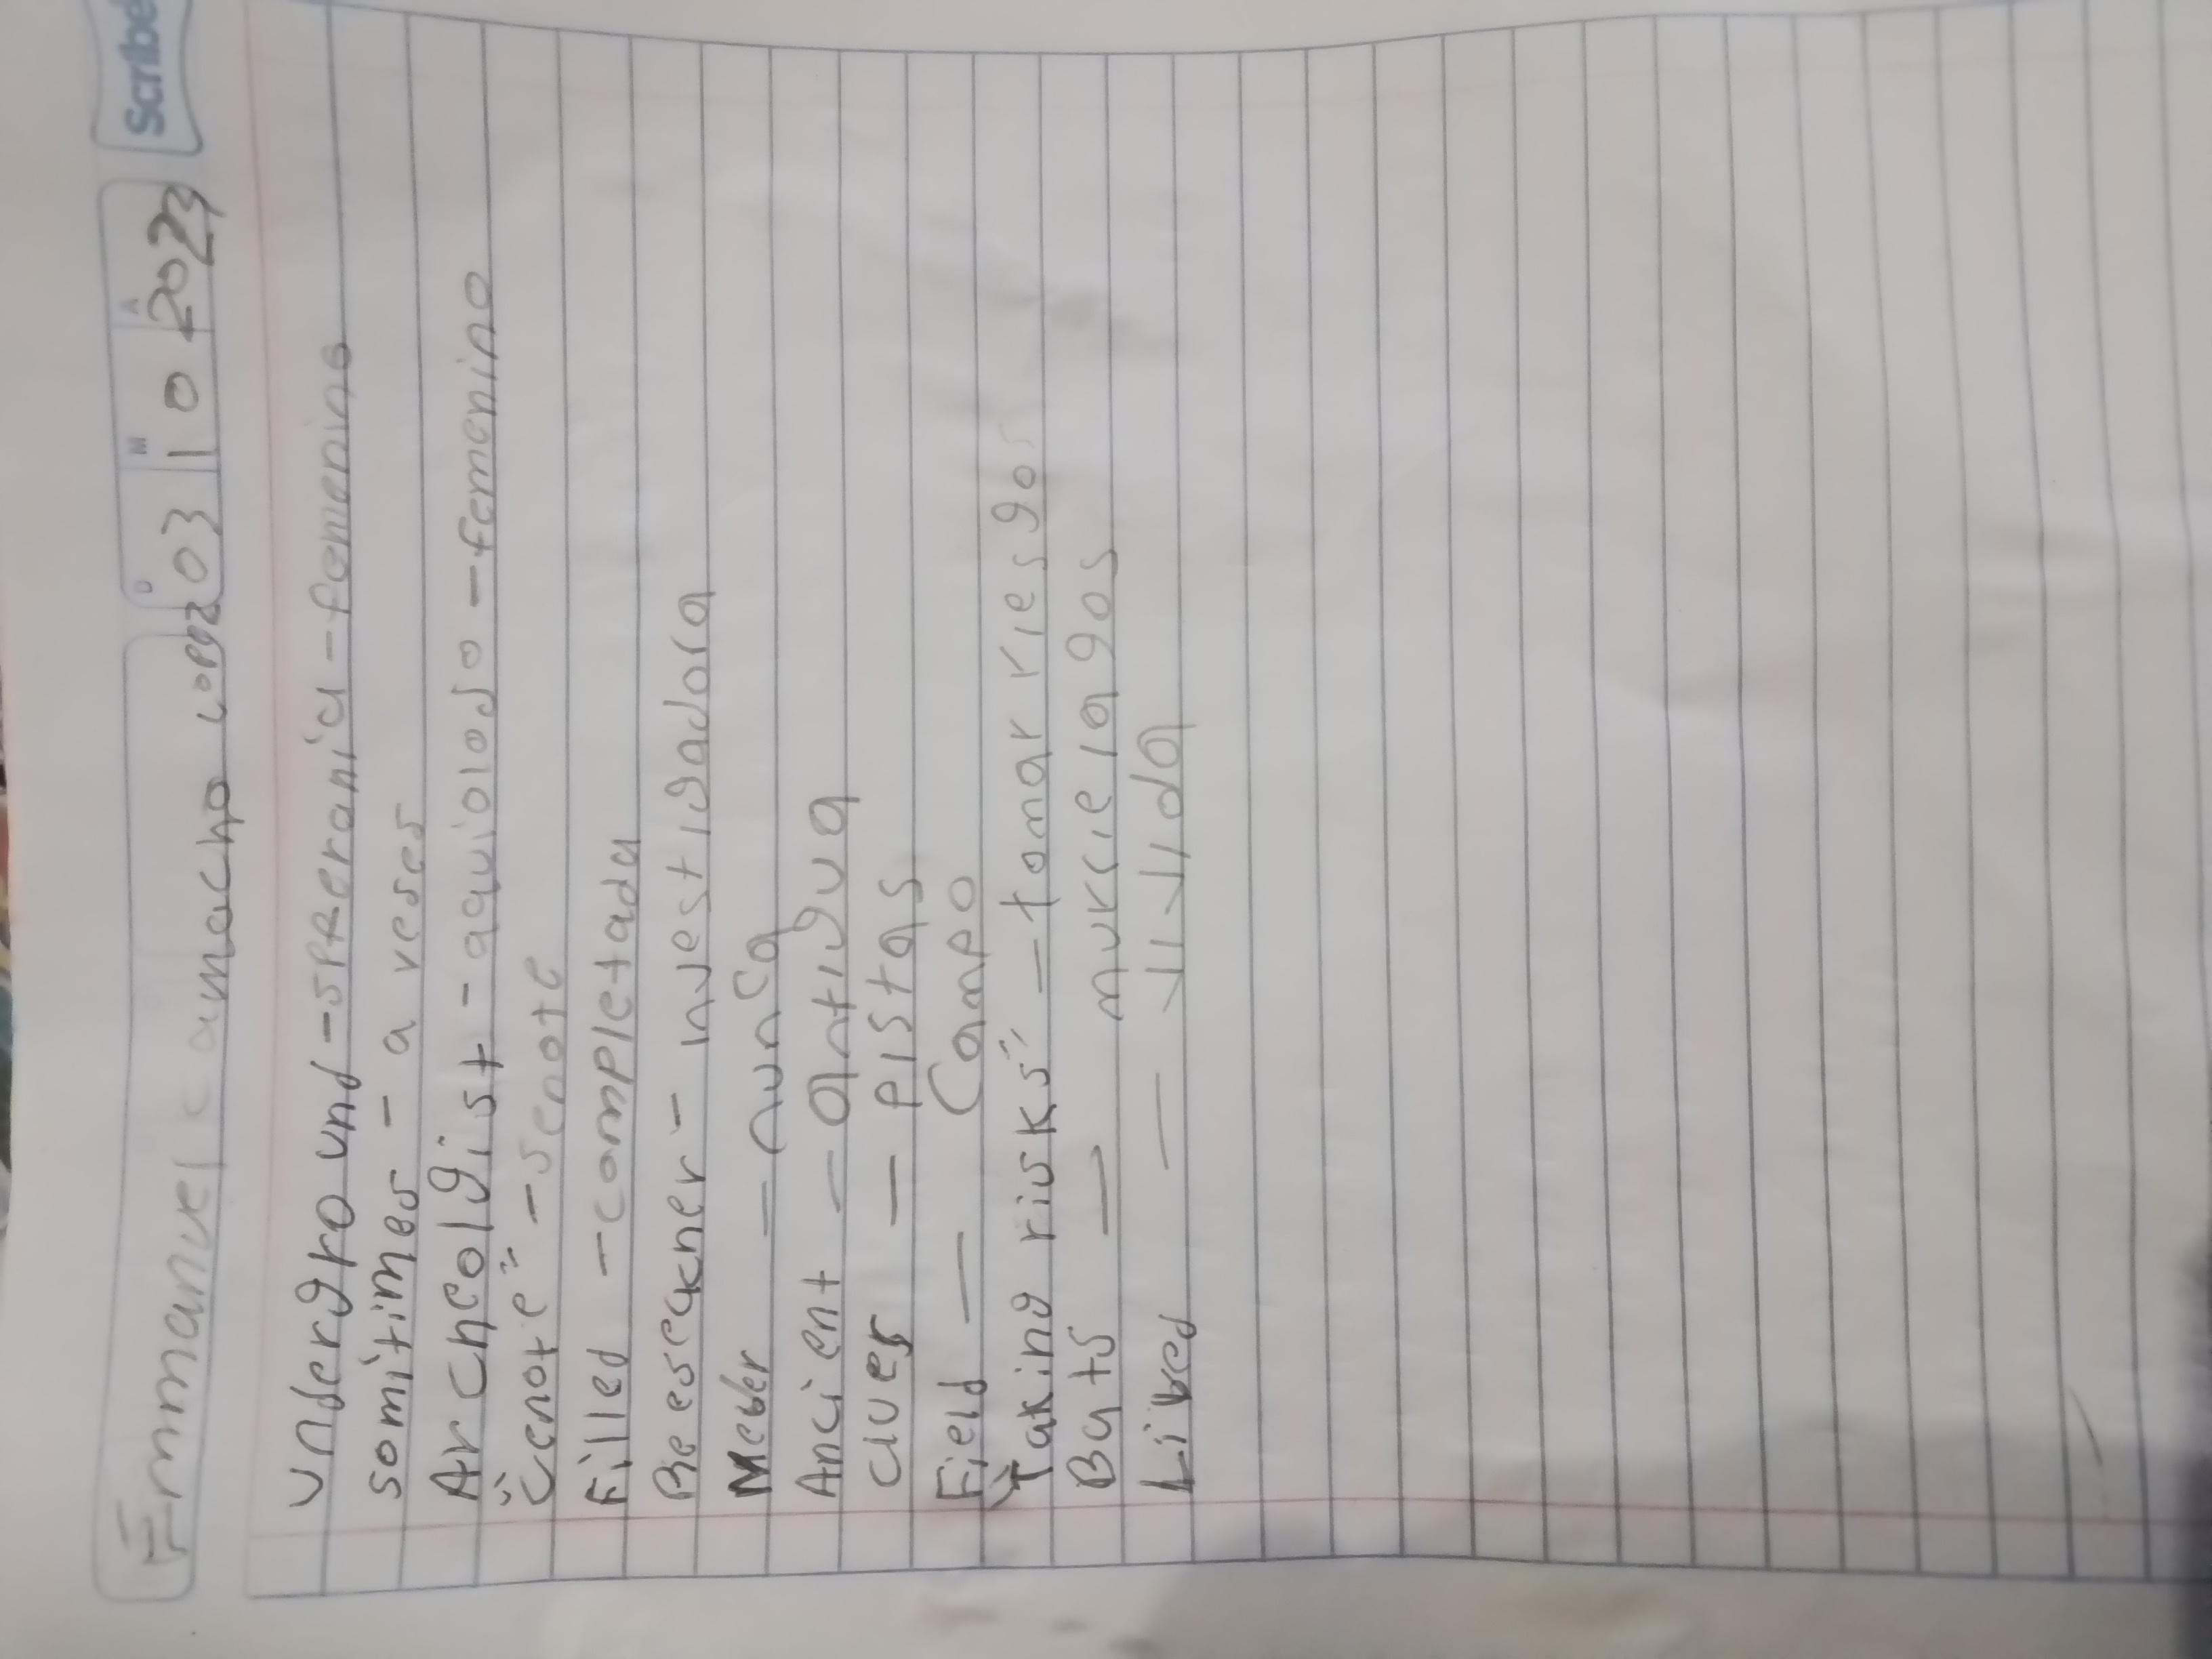 Emmanuel camacho Lopez
D M A
03 10 2023
Scribe
Underground - speerania - femenino
somitimes - a veses
Archeolgist - aquiolojo - femenino
"cenote" - scnote
Filled - completada
Reeseacner - investigadora
Meber - nunca
Ancient - antigua
cluer - pistas
Field - Campo
"Taking risks" - tomar riesgos
Bats - murcielagos
Lived - vivida